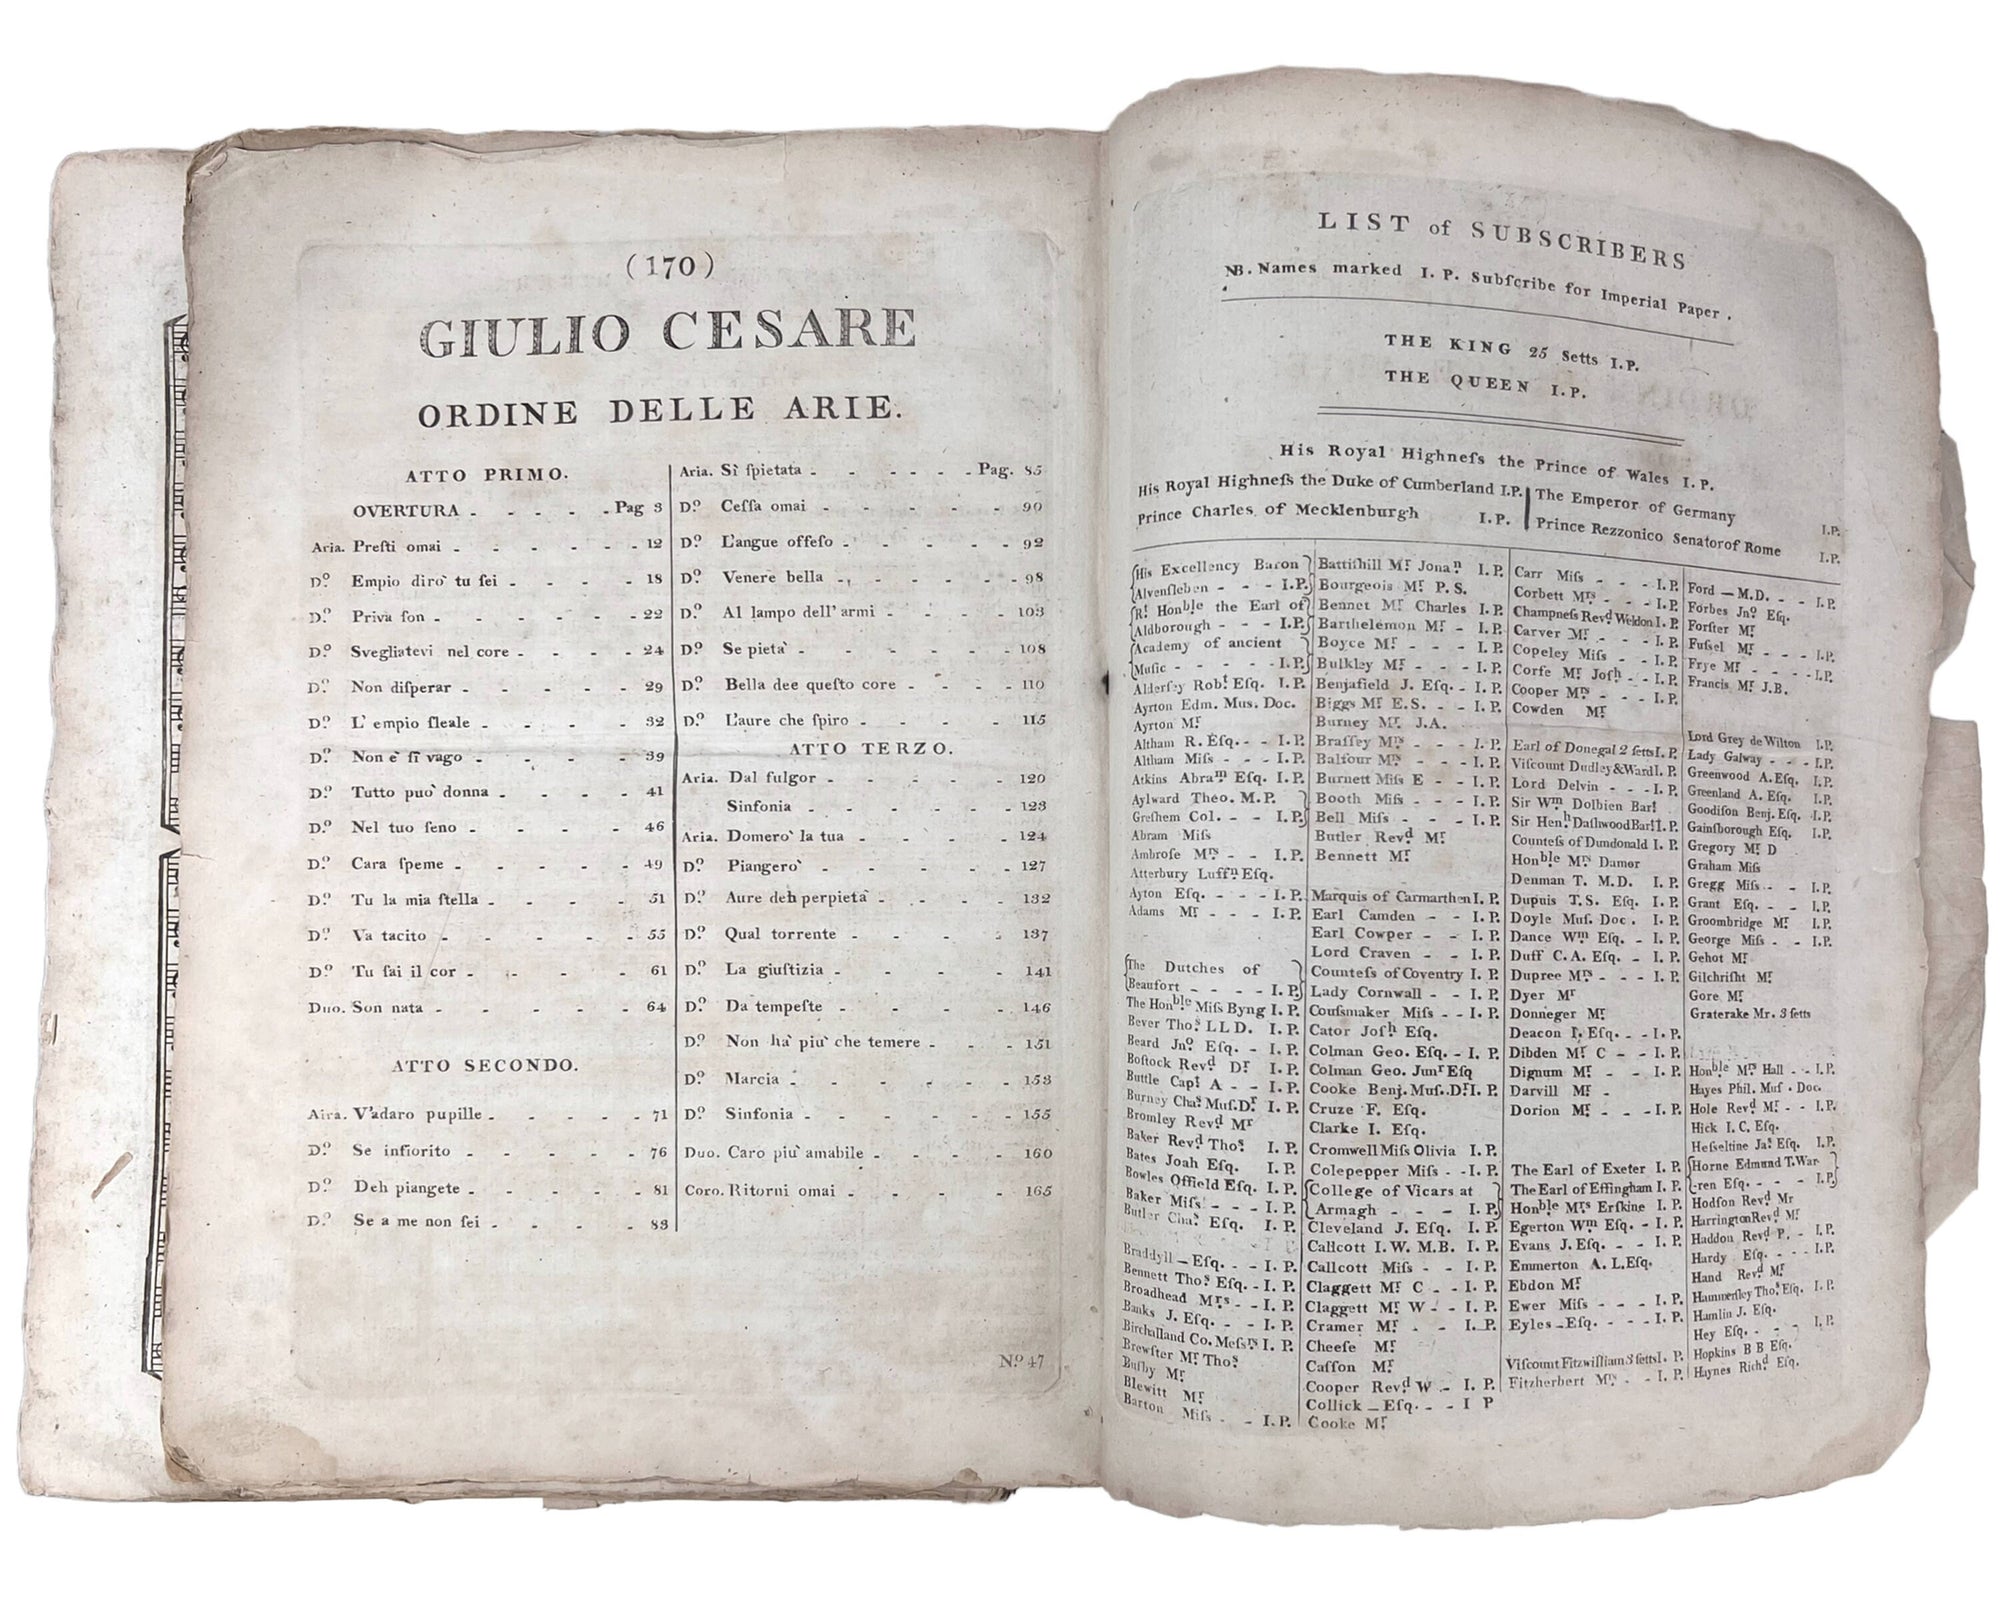 (170)
GIULIO CESARE
ORDINE DELLE ARIE.
ATTO PRIMO.
OVERTURA - - - - - Pag 3
Aria. Preſti omai - - - - - - 12
D.º Empio diro' tu ſei - - - - 18
D.º Priva ſon - - - - - - 22
D.º Svegliatevi nel core - - - - 24
D.º Non diſperar - - - - - 29
D.º L' empio ſleale - - - - - 32
D.º Non è ſi vago - - - - - 39
D.º Tutto puo' donna - - - - 41
D.º Nel tuo ſeno - - - - - 46
D.º Cara ſpeme - - - - - - 49
D.º Tu la mia ſtella - - - - - 51
D.º Va tacito - - - - - - 55
D.º Tu ſai il cor - - - - - 61
Duo. Son nata - - - - - - 64
ATTO SECONDO.
Aira. V'adaro pupille - - - - - 71
D.º Se infiorito - - - - - 76
D.º Deh piangete - - - - - 81
D.º Se a me non ſei - - - - 83
Aria. Sì ſpietata - - - - - - Pag. 85
D.º Ceſſa omai - - - - - 90
D.º L'angue offeſo - - - - - 92
D.º Venere bella - - - - - 98
D.º Al lampo dell' armi - - - - 103
D.º Se pieta' - - - - - - 108
D.º Bella dee queſto core - - - - 110
D.º L'aure che ſpiro - - - - 115
ATTO TERZO.
Aria. Dal fulgor - - - - - 120
Sinfonia - - - - - - 123
Aria. Domero' la tua - - - - - 124
D.º Piangero' - - - - - 127
D.º Aure deh perpieta' - - - - 132
D.º Qual torrente - - - - - 137
D.º La giuſtizia - - - - 141
D.º Da tempeſte - - - - - 146
D.º Non ha' piu' che temere - - - 151
D.º Marcia - - - - - - 153
D.º Sinfonia - - - - - - 155
Duo. Caro piu' amabile - - - - 160
Coro. Ritorni omai - - - - - 165
N.º 47
LIST of SUBSCRIBERS
NB. Names marked I. P. Subſcribe for Imperial Paper.
THE KING 25 Setts I.P.
THE QUEEN I.P.
His Royal Highneſs the Prince of Wales I. P.
His Royal Highneſs the Duke of Cumberland I.P.
Prince Charles of Mecklenburgh I.P.
The Emperor of Germany I.P.
Prince Rezzonico Senator of Rome I.P.
His Excellency Baron
Alvenſleben - - - I.P.
R.t Hon.ble the Earl of
Aldborough - - - I.P.
Academy of ancient
Muſic - - - - - I.P.
Alderſey Rob.t Eſq. I. P.
Ayrton Edm. Mus. Doc.
Ayrton M.r
Altham R. Eſq. - - I. P.
Altham Miſs - - - I. P.
Atkins Abra.m Eſq. I. P.
Aylward Theo. M.P.
Greſhem Col. - - I.P.
Abram Miſs
Ambroſe M.rs - - I. P.
Atterbury Luff.n Eſq.
Ayton Eſq. - - - I. P.
Adams M.r - - - I. P.
The Dutches of
Beaufort - - - - I. P.
The Hon.ble Miſs Byng I. P.
Bever Tho.s L L D. I. P.
Beard Jn.o Eſq. - I. P.
Boſtock Rev.d D.r I. P.
Buttle Cap.t A - - I. P.
Burney Cha.s Muſ. D.r I. P.
Bromley Rev.d M.r
Baker Rev.d Tho.s I. P.
Bates Joah Eſq. I. P.
Bowles Offield Eſq. I. P.
Baker Miſs - - - I. P.
Butler Cha.s Eſq. I. P.
Braddyll — Eſq. - - I. P.
Bennett Tho.s Eſq. - I. P.
Broadhead M.rs - - I. P.
Banks J. Eſq. - - I. P.
Birchall and Co. Meſs.rs I. P.
Brewſter M.r Tho.s
Buſby M.r
Blewitt M.r
Barton Miſs - - I. P.
Battiſhill M.r Jona.n I. P.
Bourgeois M.r P. S.
Bennet M.r Charles I. P.
Barthelemon M.r - I. P.
Boyce M.r - - - I. P.
Bulkley M.r - - - I. P.
Benjafield J. Eſq. - I. P.
Biggs M.r E.S. - - I. P.
Burney M.r J.A.
Braſſey M.rs - - - I. P.
Balfour M.rs - - - I. P.
Burnett Miſs E - - I. P.
Booth Miſs - - - I. P.
Bell Miſs - - - I. P.
Butler Rev.d M.r
Bennett M.r
Marquis of Carmarthen I. P.
Earl Camden - - I. P.
Earl Cowper - - I. P.
Lord Craven - - I. P.
Counteſs of Coventry I. P.
Lady Cornwall - - I. P.
Couſsmaker Miſs - - I. P.
Cator Joſ.h Eſq.
Colman Geo. Eſq. - I. P.
Colman Geo. Jun.r Eſq
Cooke Benj. Muſ. D.r I. P.
Cruze F. Eſq.
Clarke I. Eſq.
Cromwell Miſs Olivia I. P.
Colepepper Miſs - - I. P.
College of Vicars at
Armagh - - - I. P.
Cleveland J. Eſq. I. P.
Callcott I. W. M.B. I. P.
Callcott Miſs - - I. P.
Claggett M.r C - - I. P.
Claggett M.r W - - I. P.
Cramer M.r - - I. P.
Cheeſe M.r
Caſſon M.r
Cooper Rev.d W - I. P.
Collick — Eſq. - - I P
Cooke M.r
Carr Miſs - - - I. P.
Corbett M.rs - - - I. P.
Champneſs Rev.d Weldon I. P.
Carver M.r - - - I. P.
Copeley Miſs - - I. P.
Corfe M.r Joſ.h - - I. P.
Cooper M.rs - - - I. P.
Cowden M.r
Earl of Donegal 2 ſetts I. P.
Viſcount Dudley & Ward I. P.
Lord Delvin - - - I. P.
Sir W.m Dolbien Bar.t
Sir Hen.h Daſhwood Bar.t I. P.
Counteſs of Dundonald I. P.
Hon.ble M.rs Damer
Denman T. M.D. I. P.
Dupuis T. S. Eſq. I. P.
Doyle Muſ. Doc. I. P.
Dance W.m Eſq. - I. P.
Duff C. A. Eſq. - I. P.
Dupree M.rs - - - I. P.
Dyer M.r
Donneger M.r
Deacon I. Eſq. - - I. P.
Dibden M.r C - - I. P.
Dignum M.r - - I. P.
Darvill M.r -
Dorion M.r - - - I. P.
The Earl of Exeter I. P.
The Earl of Effingham I. P.
Hon.ble M.rs Erſkine I. P.
Egerton W.m Eſq. - I. P.
Evans J. Eſq. - - I. P.
Emmerton A. L. Eſq.
Ebdon M.r
Ewer Miſs - - - I. P.
Eyles — Eſq. - - - I. P.
Viſcount Fitzwilliam 3 ſetts I. P.
Fitzherbert M.rs - - I. P.
Ford — M.D. - - I. P.
Forbes Jn.o Eſq.
Forſter M.r
Fuſsel M.r - - - I. P.
Frye M.r - - - I. P.
Francis M.r J.B.
Lord Grey de Wilton I. P.
Lady Galway - - - I. P.
Greenwood A. Eſq. I. P.
Greenland A. Eſq. I. P.
Goodiſon Benj. Eſq. I. P.
Gainſborough Eſq. I. P.
Gregory M.r D
Graham Miſs
Gregg Miſs - - I. P.
Grant Eſq. - - I. P.
Groombridge M.r I. P.
George Miſs - - I. P.
Gehot M.r
Gilchriſht M.r
Gore M.r
Graterake Mr. 3 ſetts
Hon.ble M.rs Hall - - I. P.
Hayes Phil. Muſ. Doc.
Hole Rev.d M.r - - I. P.
Hick I. C. Eſq.
Heſeltine Ja.s Eſq. I. P.
Horne Edmund T. War-
-ren Eſq. - - - I. P.
Hodſon Rev.d Mr
Harrington Rev.d M.r
Haddon Rev.d P. - I. P.
Hardy Eſq. - - - I. P.
Hand Rev.d M.r
Hammerſley Tho.s Eſq. I. P.
Hamlin J. Eſq.
Hey Eſq. - - - I. P.
Hopkins B B Eſq.
Haynes Rich.d Eſq.